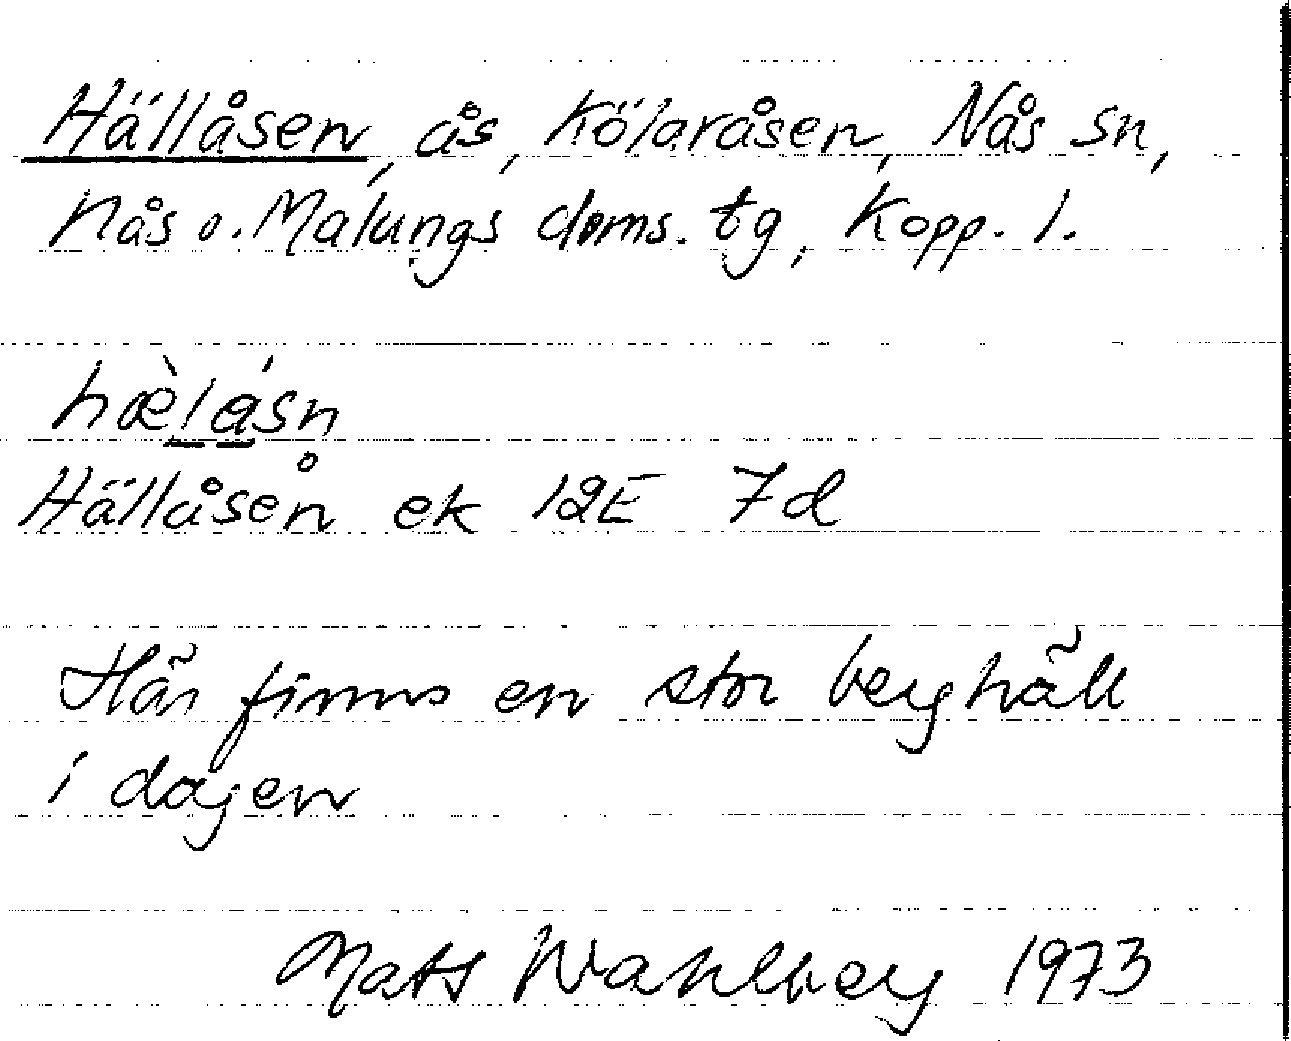 Hällåsen, ås, Kölaråsen, Nås sn,
Nås o. Malungs doms. tg, Kopp. l.
hæ̀låsn
Hällåsen ek 12E 7d
Här finns en stor berghäll
i dagen
Mats Wahlberg 1973